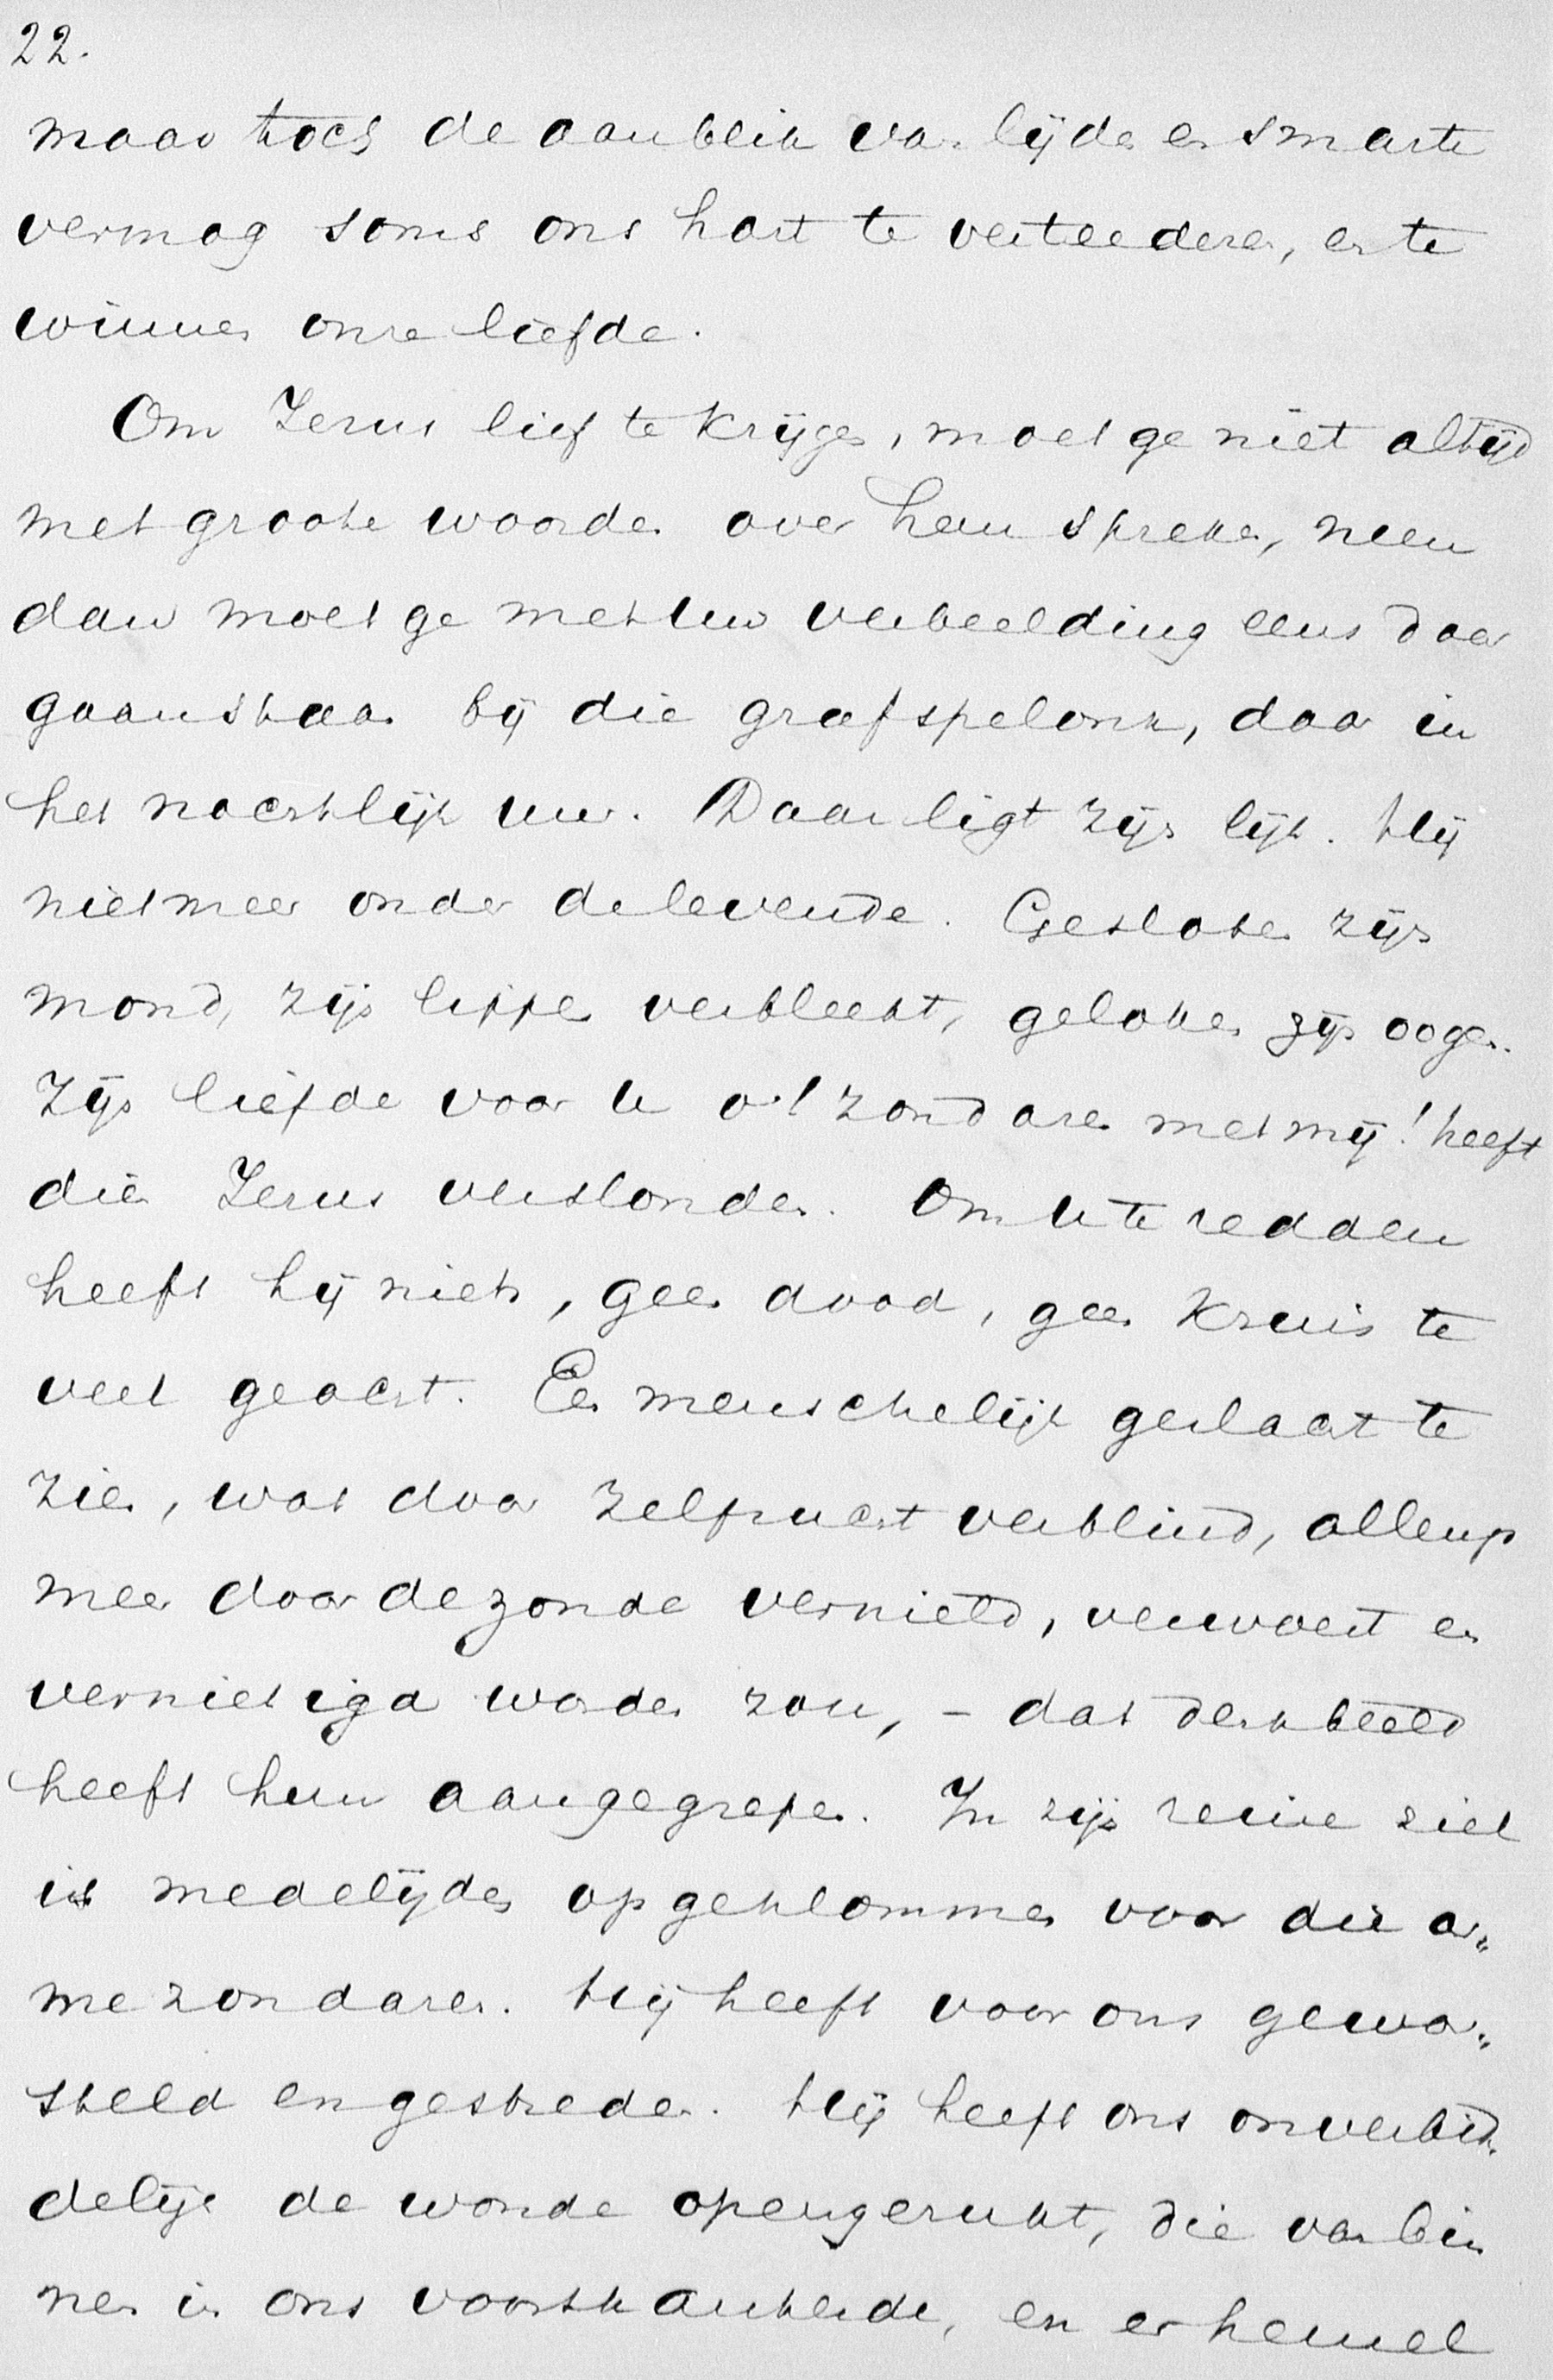 22.
maar toch de aanblik van lijden en smarte
vermag soms ons hart te verteederen, en te
winnen onze liefde.
Om Jezus lief te krijgen, moet ge niet altijd
met groote woorden over hem spreken, neen
dan moet ge met uw verbeelding eens daar
gaan staan bij die grafspelonk, daar in
het nachtlijk uur. Daar ligt zijn lijk. Hij
niet meer onder de levende. Gesloten zijn
mond, zijn lippen verbleekt, geloken zijn oogen.
Zijn liefde voor u o! zondaren met mij! heeft
dien Jezus verslonden. Om u te redden
heeft hij niets, geen dood, geen kruis te
veel geacht. Een menschelijk geslacht te
zien, wat door zelfzucht verblind, allengs
meer door de zonde vernield, verwoest en
vernietigd worden zou, – dat denkbeeld
heeft hem aangegrepen. In zijn reine ziel
is medelijden opgeklommen voor die ar„
me zondaren. Hij heeft voor ons gewor„
steld en gestreden. Hij heeft ons onverbid„
delijk de wonde opengerukt, die van bin
nen in ons voortkankerde, en er hemel